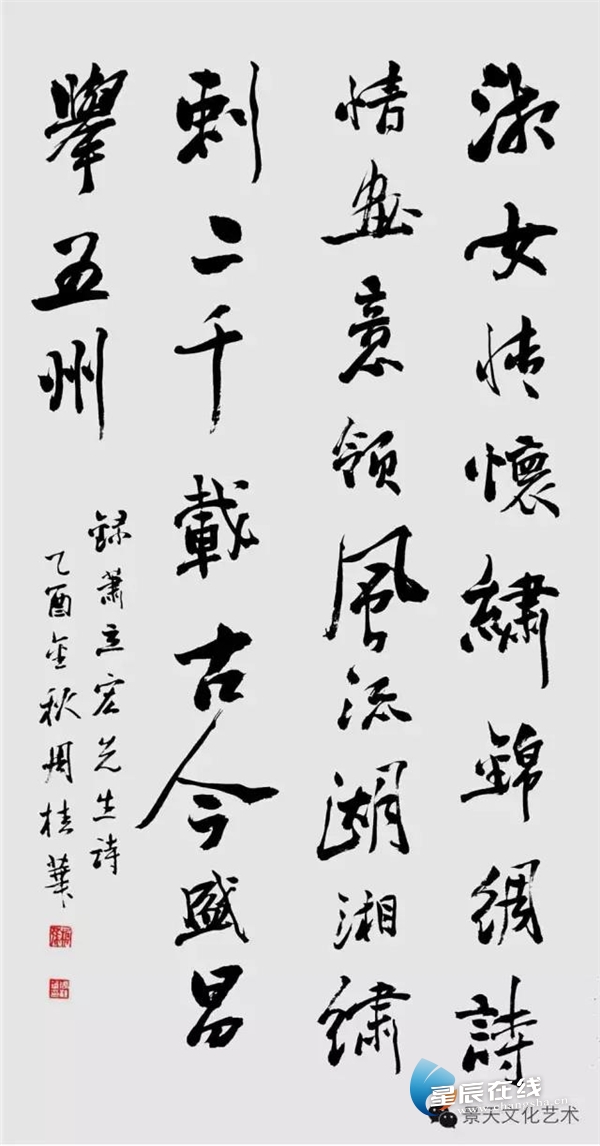 湘女情懷繡錦綢詩
情畫意領風流湖湘繡
刺二千載古今盛昌
舉五州
録蕭立宏先生詩
乙酉金秋周桂華
星辰在线
景天文化艺术